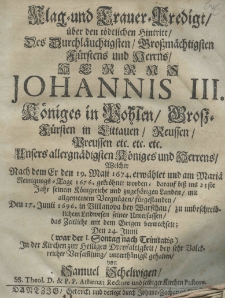 Klag- und Trauer-Predigt/
über den tödtlichen Hintritt/
Des Durchläuchtigsten/ Großmächtigsten
Fürstens und Herrns/
HERRNS
JOHANNIS III.
Königes in Pohlen/ Groß-
Fürsten in Littauen/ Reussen/
Preussen etc. etc. etc.
Unsers allergnädigsten Königes und Herrens/
Welcher
Nach dem Er den 19. Maii 1674. erwählet und am Mariä
Reinigungs-Tage 1676. gekröhnet worden/ darauf biß ins 23ste
Jahr seinem Königreiche und zugehörigen Landen/ mit
allgemeinem Vergnügen/ fürgestanden/
Den 17. Junii 1696. in Villanova bey Warschau/ zu unbeschreib-
lichem Leidwesen seiner Unterthanen/
das Zeitliche mit dem Ewigen verwechselt;
Den 24. Junii
(war der 1. Sontag nach Trinitatis)
In der Kirchen zur Heiligen Dreyfaltigkeit/ bey sehr Volck-
reicher Versamlung/
von
Samuel Schelwigen/
SS. Theol. D. & P. P. Athenæi Rectore und jetziger Kirchen Pastore.
DANTZIG/ Gedruckt und verlegt durch Johann